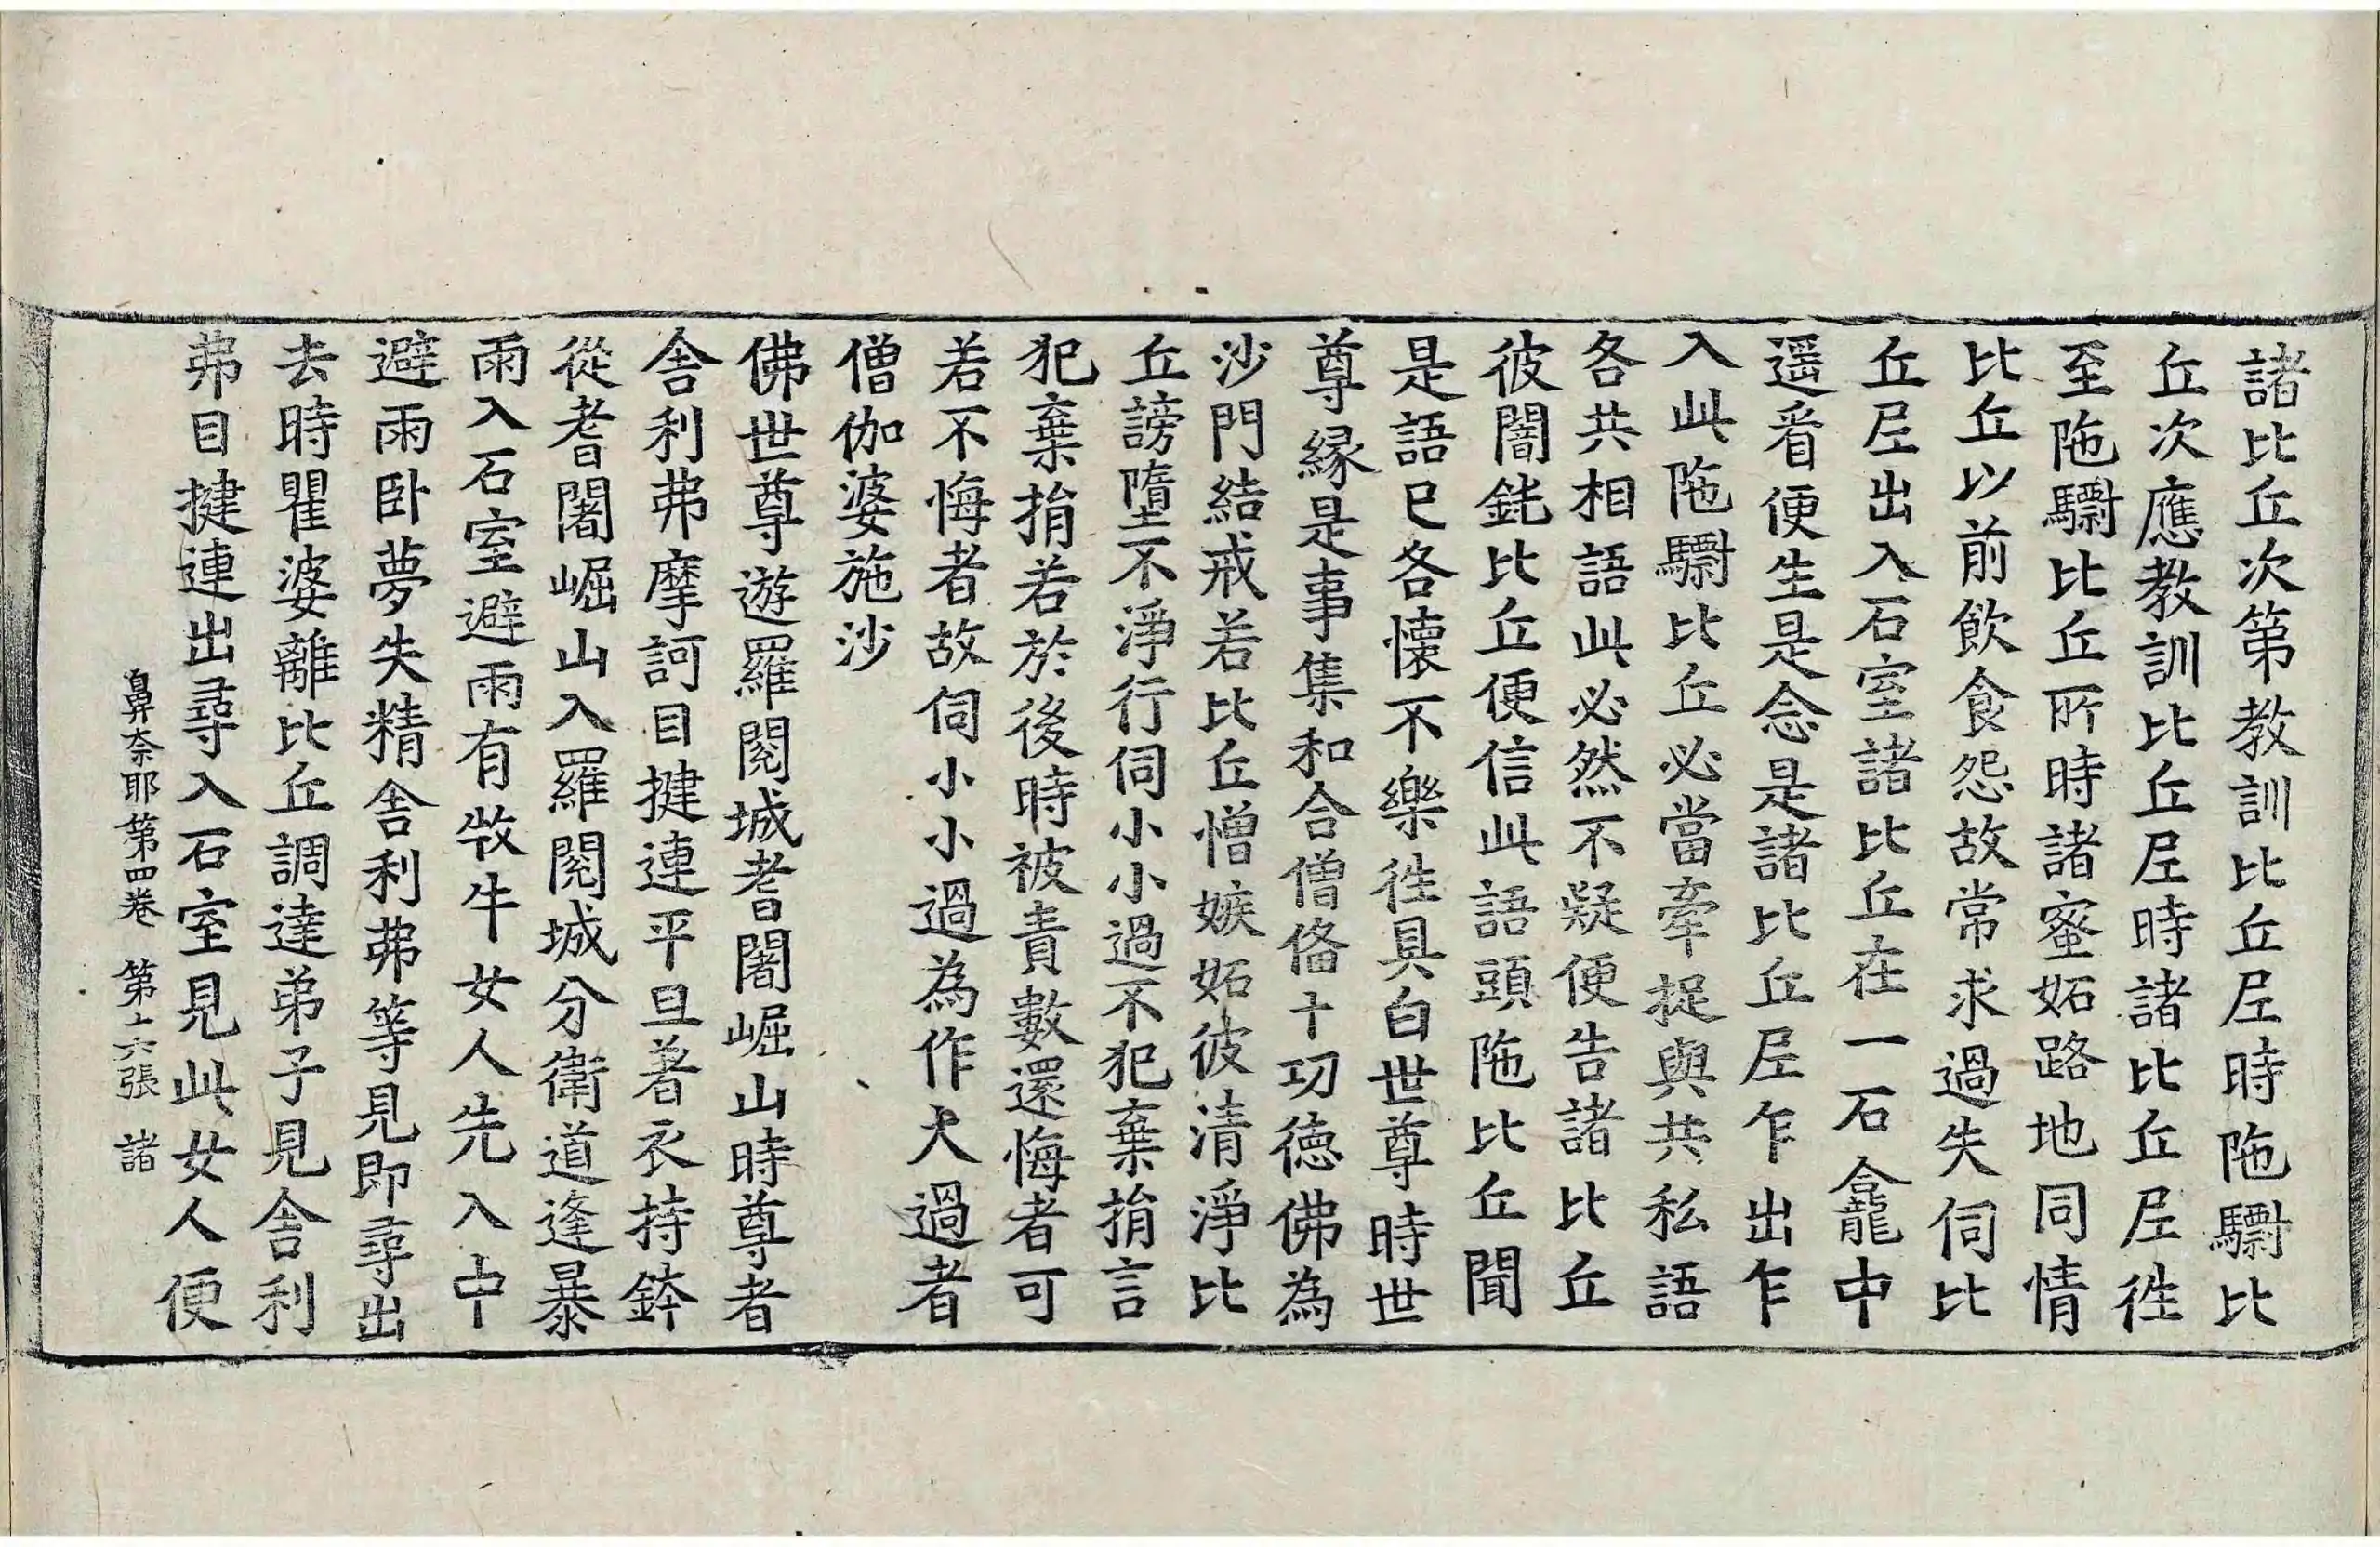 諸比丘次第教訓比丘尼時陁驎比
丘次應教訓比丘尼時諸比丘尼徃
至陁驎比丘所時諸蜜妬路地同情
比丘以前飲食怨故常求過失伺比
丘尼出入石室諸比丘在一石龕中
遥看便生是念是諸比丘尼乍出乍
入此陁驎比丘必當牽捉與共私語
各共相語此必然不疑便告諸比丘
彼闇鈍比丘便信此語頭陁比丘聞
是語已各懷不樂徃具白世尊時世
尊緣是事集和合僧俻十功德佛為
沙門結戒若比丘憎嫉妬彼清淨比
丘謗墮不淨行伺小小過不犯棄捐言
犯棄捐若於後時被責數還悔者可
若不悔者故伺小小過為作大過者
僧伽婆施沙
佛世尊遊羅閱城耆闍崛山時尊者
舎利弗摩訶目揵連平旦著衣持鉢
從耆闍崛山入羅閱城分衛道逢暴
雨入石室避雨有牧牛女人先入中
避雨卧夢失精舎利弗等見即尋出
去時瞿婆離比丘調達弟子見舎利
弗目揵連出尋入石室見此女人便
鼻奈耶第四卷　第十六張　諸